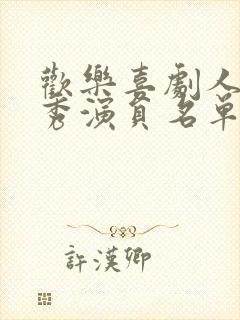 歡樂喜劇人
秀演員名單
許漢卿